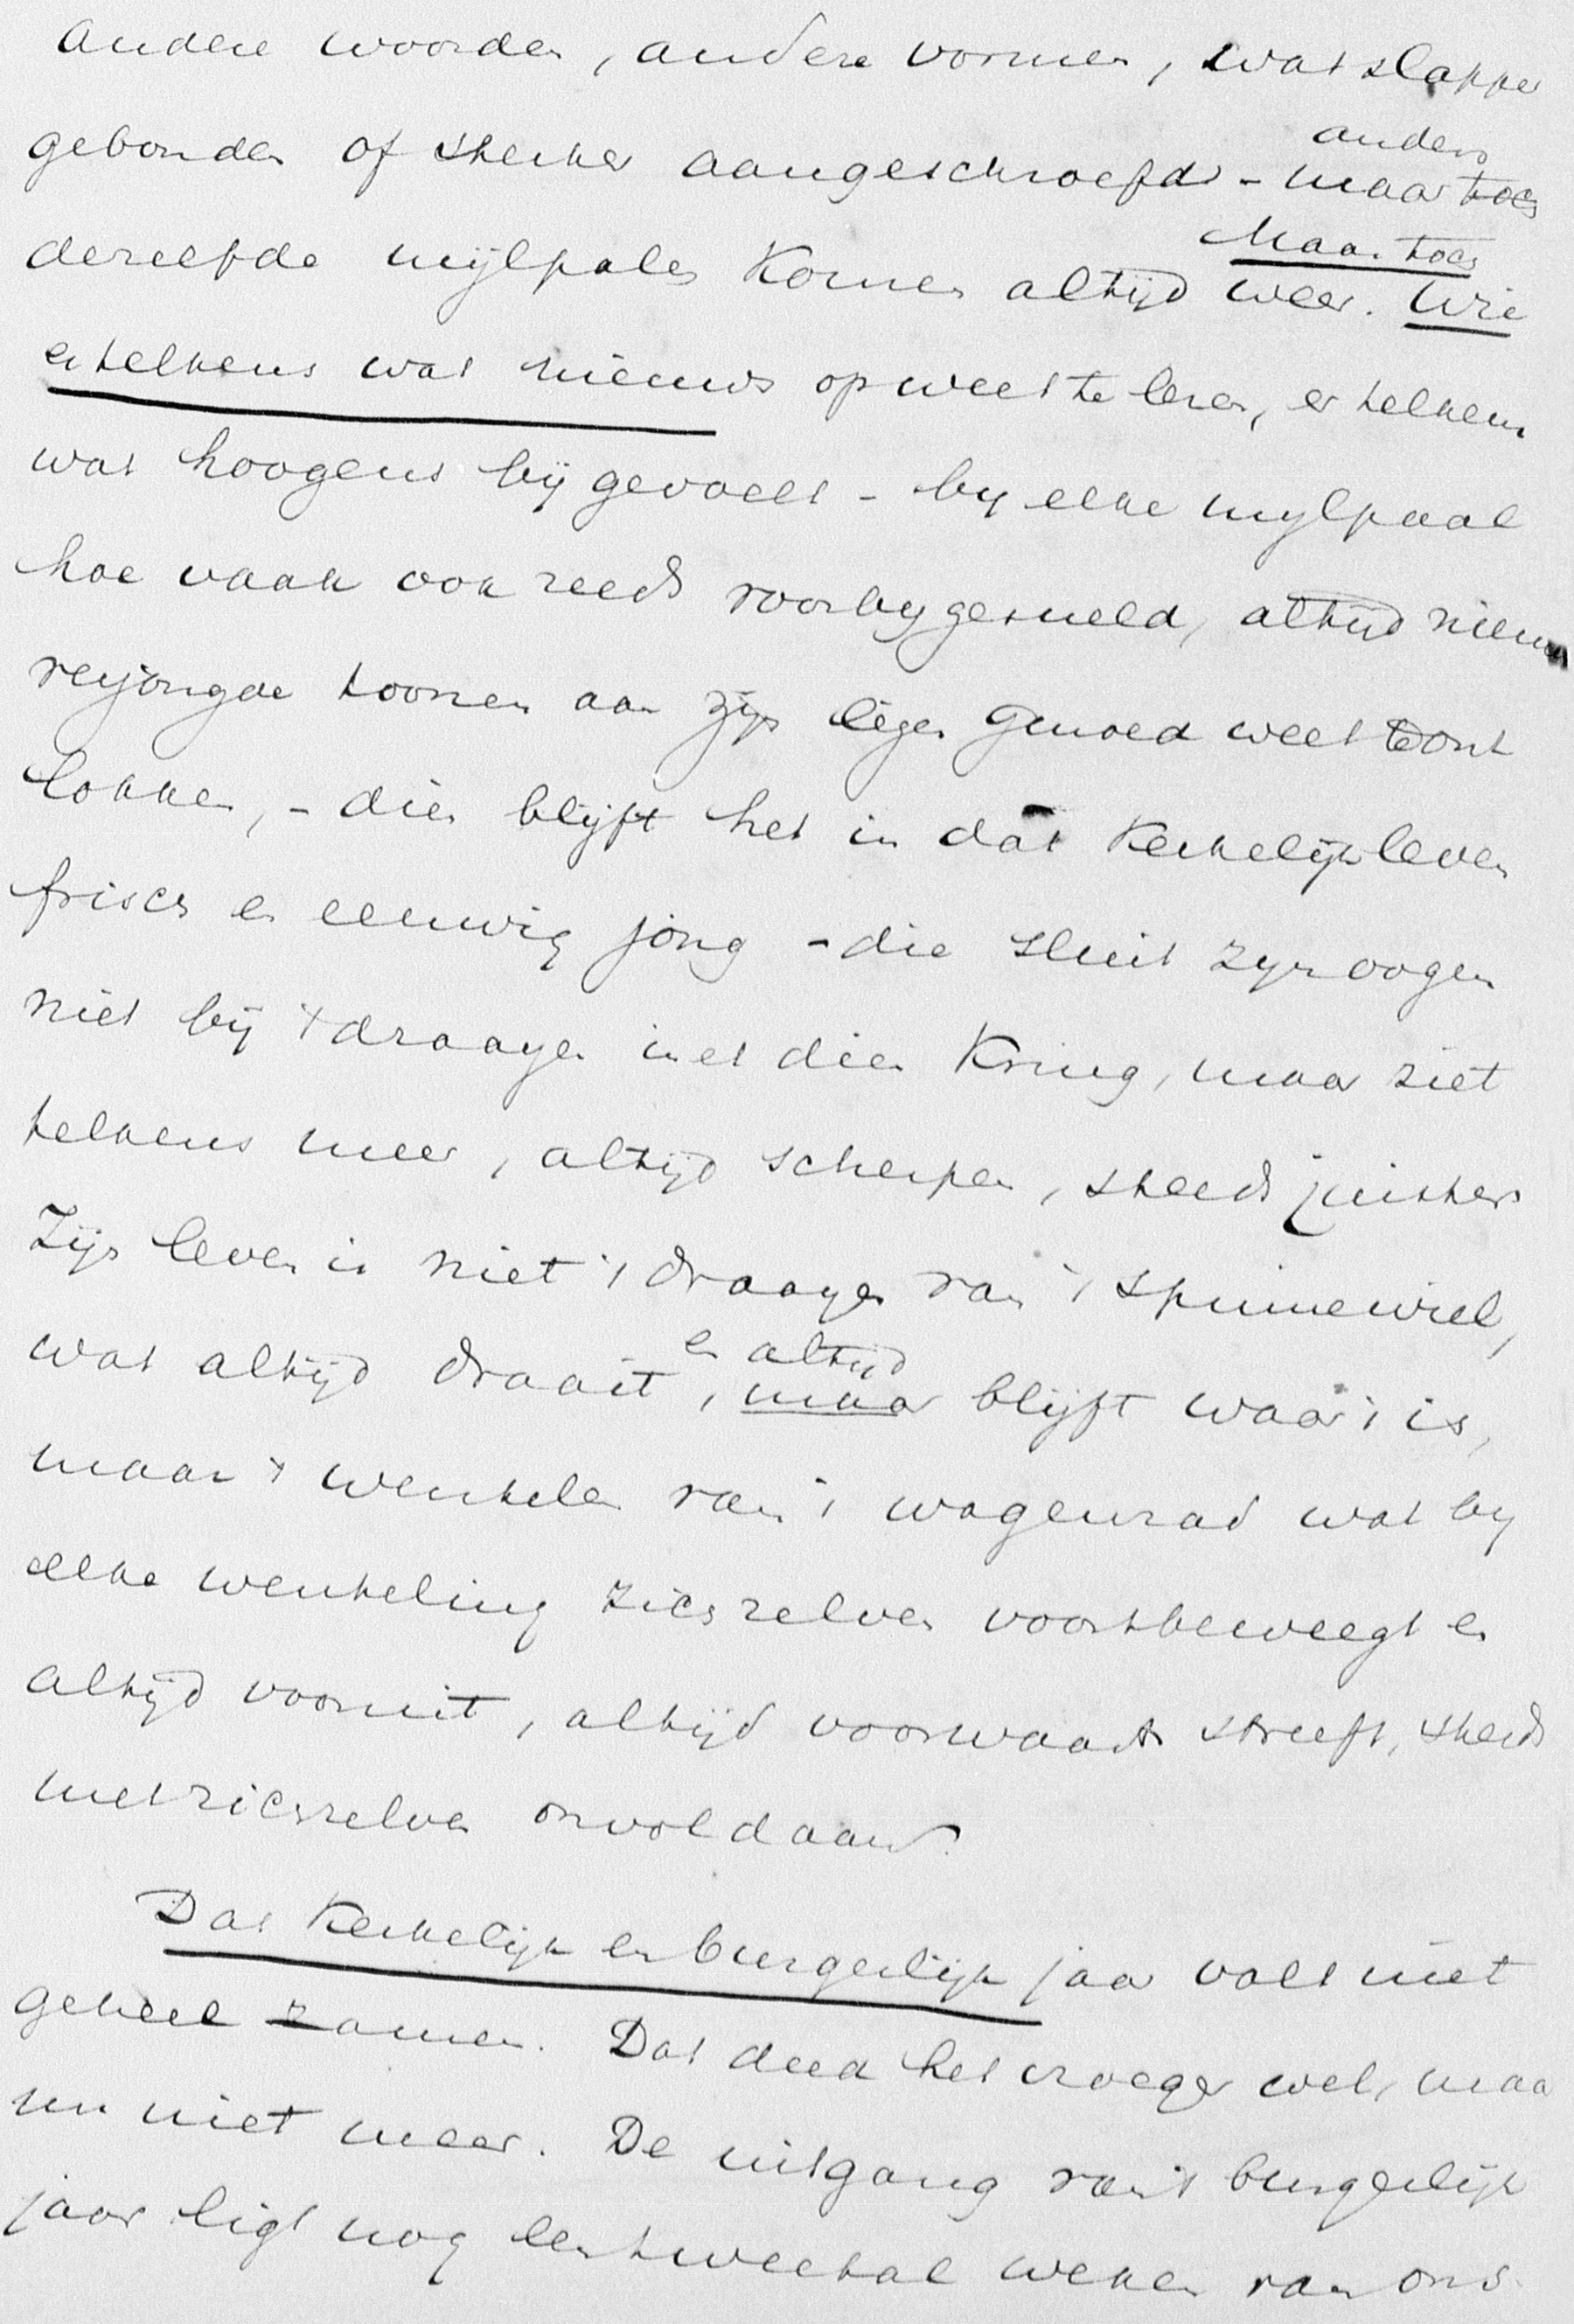 andere woorden, andere vormen, wat slapper
anders
gebonden of sterker aangeschroefd - maar toch
Maar toch
dezelfde mijlpalen komen altijd weer. Wie
er telkens wat nieuws op weet te lezen, er telkens
wat hoogers bij gevoelt - by elke mylpaal
hoe vaak ook reeds voorbygesneld, altijd nieuwe
verjongde toonen aan zijn eigen gemoed weet te ont
lokken, - dien blijft het in dat Kerkelijk leven
frisch en eeuwig jong - die sluit zyn oogen
niet bij 't draayen in et dien Kring, maar ziet
telkens meer, altijd scherper, steeds juister
Zijn leven is niet 't draayen van 't spinnewiel,
en altijd
wat altijd draait, maar blijft waar 't is,
maar 't wentelen van 't wagenrad wat by
elke wenteling zich zelven voortbeweegt en
altijd vooruit, altijd voorwaarts streeft, steeds
met zichzelven onvoldaan.
Dat Kerkelijk en burgerlijk jaar valt niet
geheel zamen. Dat deed het vroeger wel, maar
nu niet meer. De uitgang van 't burgerlijk
jaar ligt nog een tweetal weken van ons